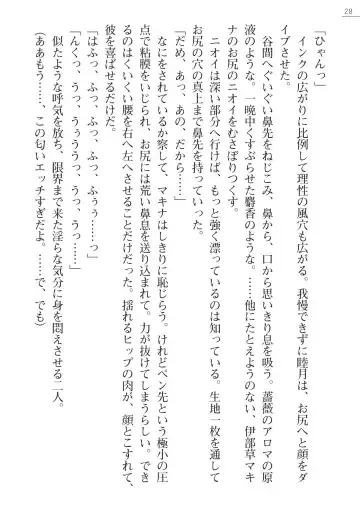 28
「ひゃんっ」
　インクの広がりに比例して理性の風穴も広がる。我慢できずに睦月は、お尻へと顔をダ
イブさせた。
　谷間へぐいぐい鼻先をねじこみ、鼻から、口から思いきり息を吸う。薔薇のアロマの原
液のような。一晩中くすぶらせた麝香のような。……他にたとえようのない、伊部草マキ
ナのお尻のニオイをむさぼりつくす。
　ニオイは深い部分へ行けば、もっと強く漂っているのは知っている。生地一枚を通して
お尻の穴の真上まで鼻先を持っていった。
「だめ、あっ、あの、だから……」
　なにをされているか察して、マキナはしきりに恥じらう。けれどペン先という極小の圧
点で粘膜をいじられ、お尻には荒い鼻息を送り込まれて。力が抜けてしまうらしい。でき
るのはくいくい腰を右へ左へさせることだけだった。揺れるヒップの肉が、顔とこすれて、
彼を喜ばせるだけだ。
「はふっ、ふっ、ふっ、ふっ、ふぅ……っ」
「んくっ、うっ、うぅううっ、うっ、うっ……」
　似たような呼気を放ち、限界まで来た淫らな気分に身を悶えさせる二人。
（ああもう……、この匂いエッチすぎだよ。……で、でも）